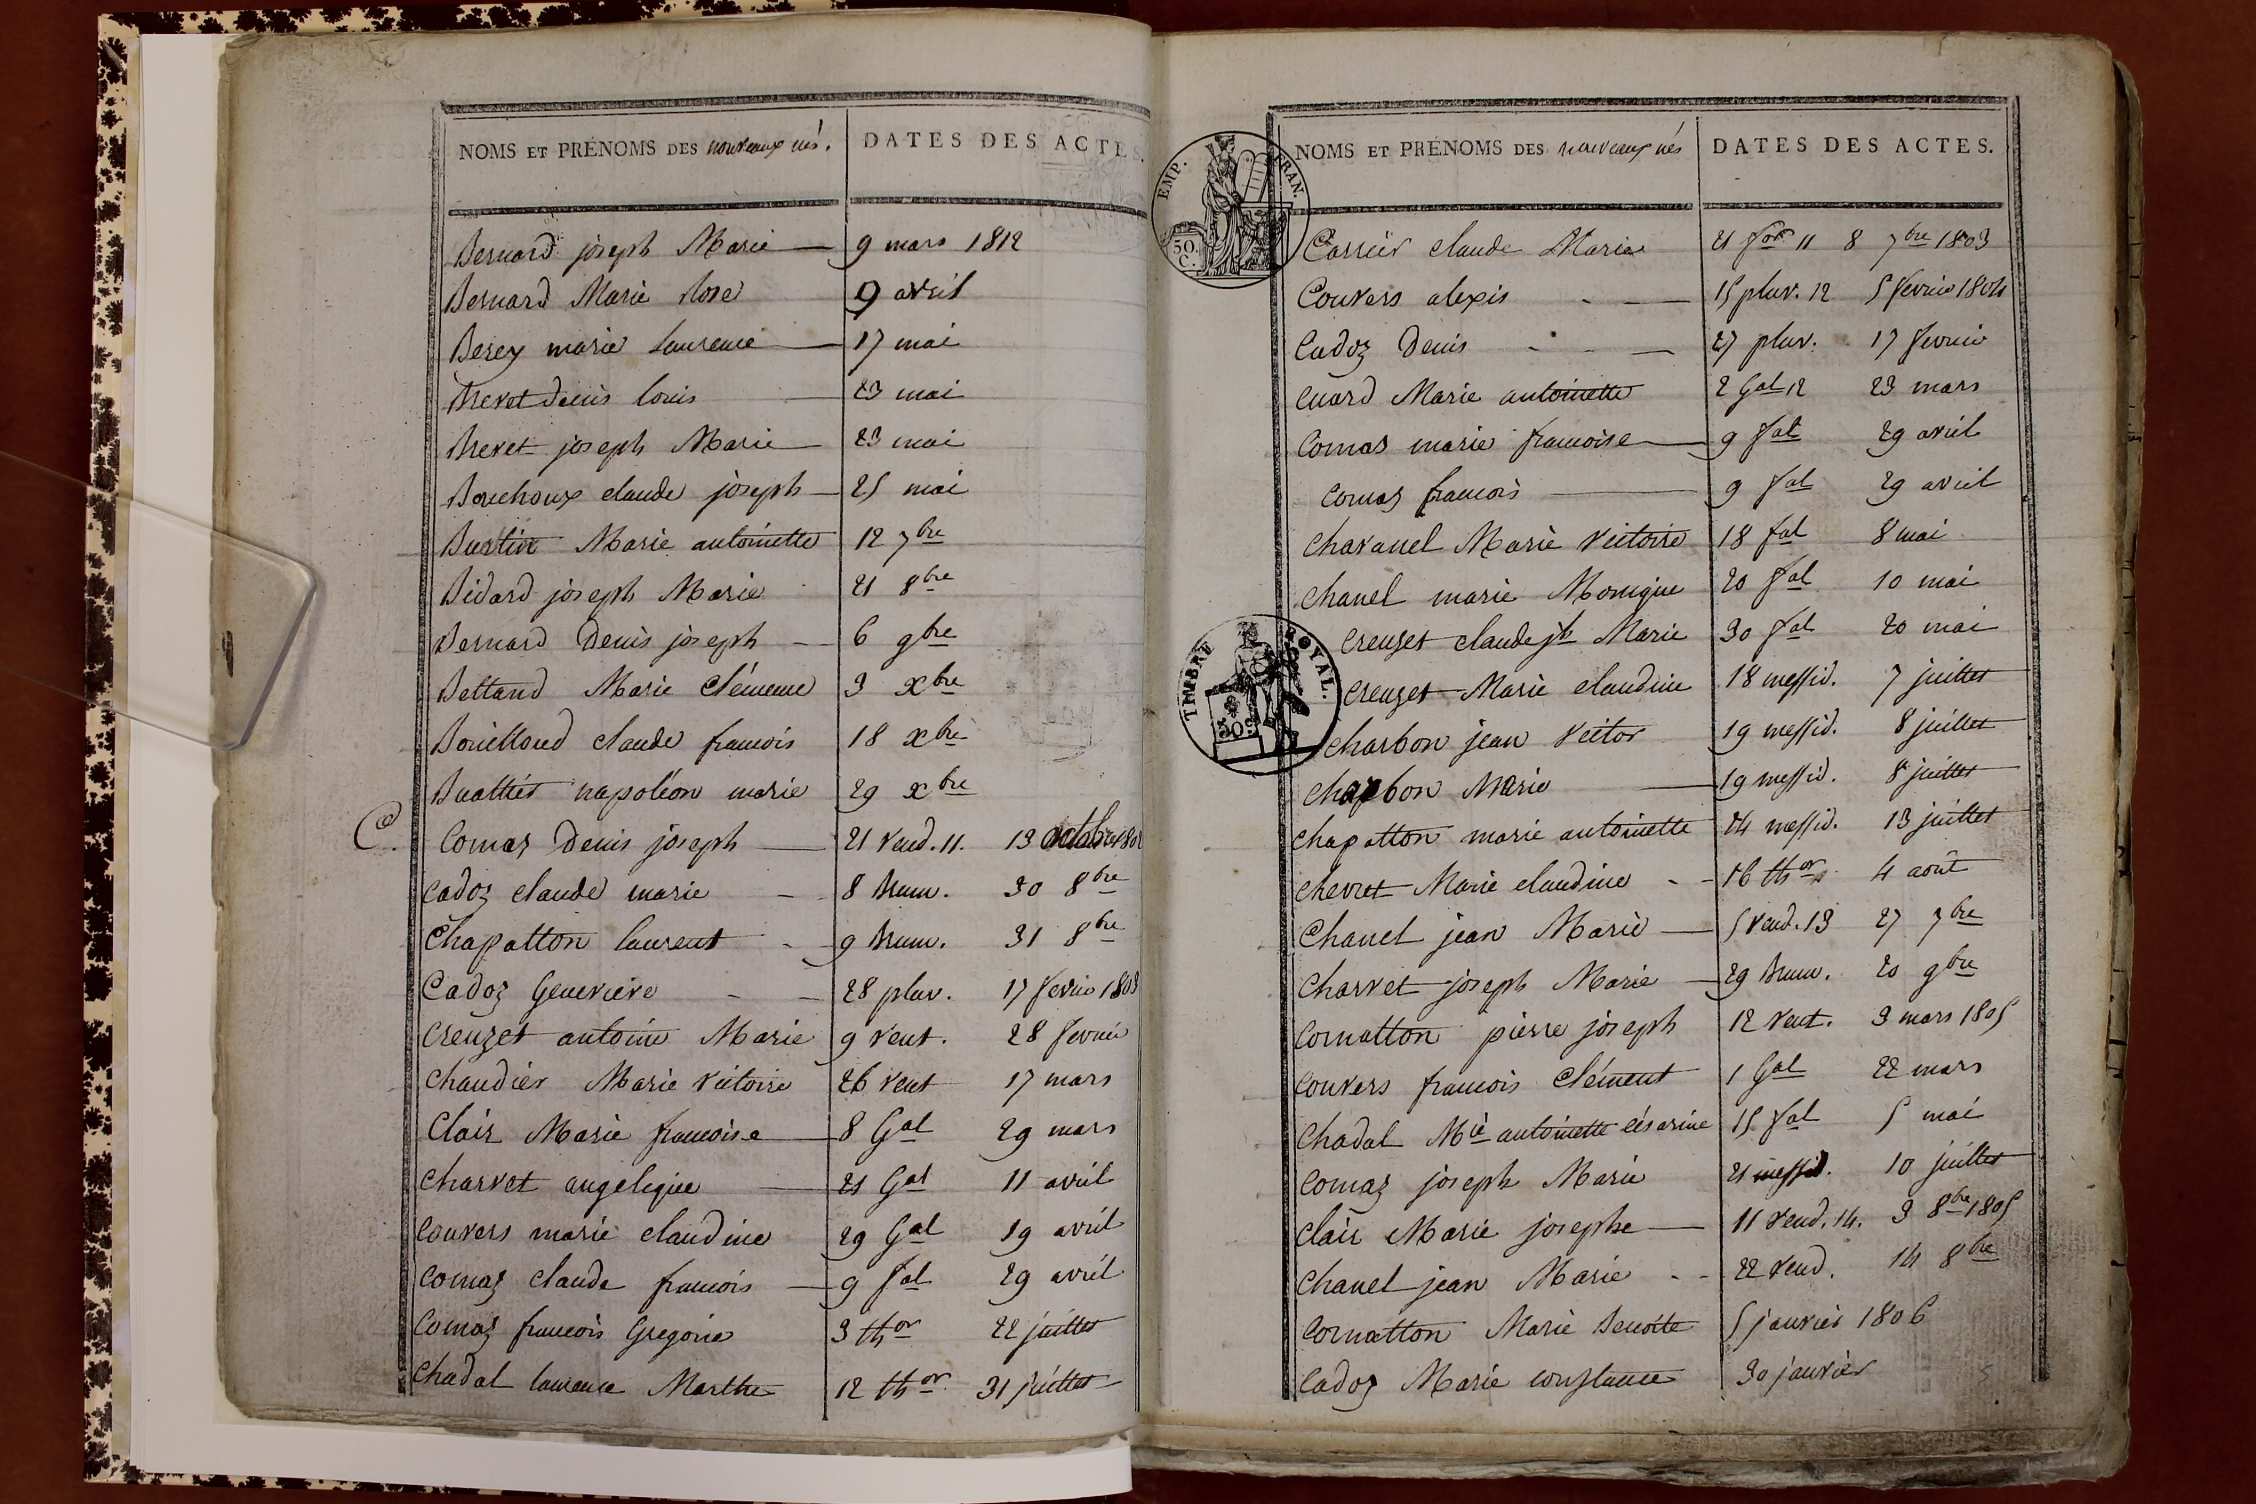 NOMS ET PRÉNOMS DES nouveaux nés. DATES DES ACTES.
Bernard joseph Marie — 9 mars 1812
Bernard Marie Rose 9 avril
Berey marie Laurence — 17 mai
Brevet denis louis 23 mai
Brevet joseph Marie — 23 mai
Bouchoux claude joseph — 25 mai
Bustin Marie antoinette 12 7bre
Bidard joseph Marie 21 8bre
Bernard Denis joseph - - 6 9bre
Bettand Marie Clémence 3 xbre
Bouilloud claude francois 18 xbre
Buathier napoléon marie 29 xbre
C. Comaz Denis joseph — 21 vend. 11. 13 octobre 1802
Cadoz claude marie - - 8 brum. 30 8bre
Chapatton laurent - - 9 brum. 31 8bre
Cadoz Genevieve - - 28 pluv. 17 fevrier 1803
Creuzet antoine Marie 9 vent. 28 fevrier
Chaudier Marie victoire 26 vent 17 mars
Clair Marie francoise — 8 Gal 29 mars
Charvet angelique — 21 Gal 11 avril
Couvers marie claudine 29 Gal 19 avril
Comaz claude francois — 9 fal 29 avril
Comaz francois Gregoire 3 thor 22 juillet
Chadal laurence Marthe 12 thor 31 juillet
EMP. FRAN.
50. C.
NOMS ET PRÉNOMS DES nouveaux nés DATES DES ACTES.
Carrier claude Marie 21 for 11 8 7bre 1803
Couvers alexis - — 15 pluv. 12 5 fevrier 1804
Cadoz Denis - - — 27 pluv. 17 fevrier
Cuard Marie antoinette 2 Gal 12 23 mars
Comas marie francoise — 9 fal 29 avril
Comaz francois — 9 fal 29 avril
Chavanel Marie victoire 18 fal 8 mai
Chanel marie Monique 20 fal 10 mai
TIMBRE ROYAL.
50c
Creuzet claude jh Marie 30 fal 20 mai
Creuzet Marie claudine 18 messid. 7 juillet
Charbon jean victor 19 messid. 8 juillet
Charbon Marie — 19 messid. 8 juillet
Chapatton marie antoinette 24 messid. 13 juillet
Chevret Marie claudine - - 16 thor 4 août
Chanel jean Marie — 5 vend. 13 27 7bre
Charvet joseph Marie — 29 brum. 20 9bre
Cornatton pierre joseph 12 vent. 3 mars 1805
Couvers francois Clément 1 Gal 22 mars
Chadal Mie antoinette césarine 15 fal 5 mai
Comaz joseph Marie 21 messid. 10 juillet
Clair Marie josephe — 11 vend. 14. 3 8bre 1805
Chanel jean Marie - - 22 vend. 14 8bre
Cornatton Marie Benoite 5 janvier 1806
Cadoz Marie constance 30 janvier